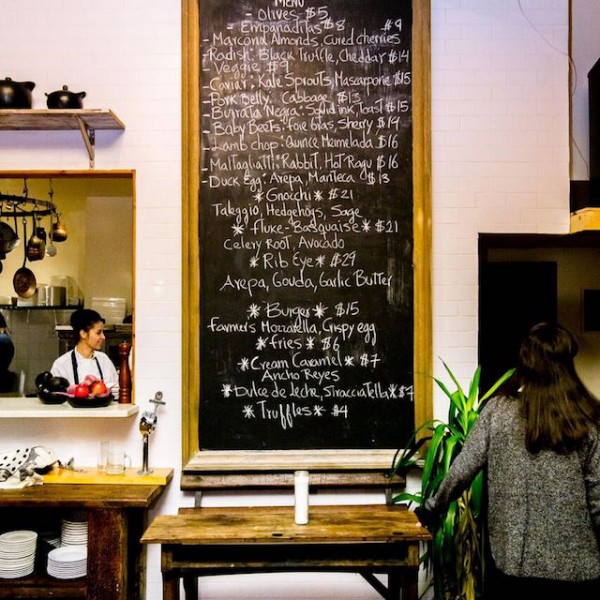 MENU
- Olives - $5
- Empanaditas $8
- Marcona Almonds, Cured cherries $9
- Radish: Black Truffle, Cheddar $14
Veggie $9
- Caviar: Kale Sprouts, Mascarpone $15
- Pork Belly: Cabbage $13
- Burrata Negra: Squid ink, Toast $15
- Baby Beets: foie Gras, Sherry $14
- Lamb chop: Quince Mermelada $16
- Maltagliatti: Rabbit, Hot Ragu $16
- Duck Egg: Arepa, Manteca $13
* Gnocchi * $21
Taleggio, Hedgehogs, Sage
* Fluke - Basquaise * $21
Celery Root, Avocado
* Rib Eye * $29
Arepa, Gouda, Garlic Butter
* Burger * $15
farmer's Mozzarella, Crispy egg
* fries * $6
* Cream Caramel * $7
Ancho Reyes
* Dulce de Leche, Stracciatella * $7
* Truffles * $4